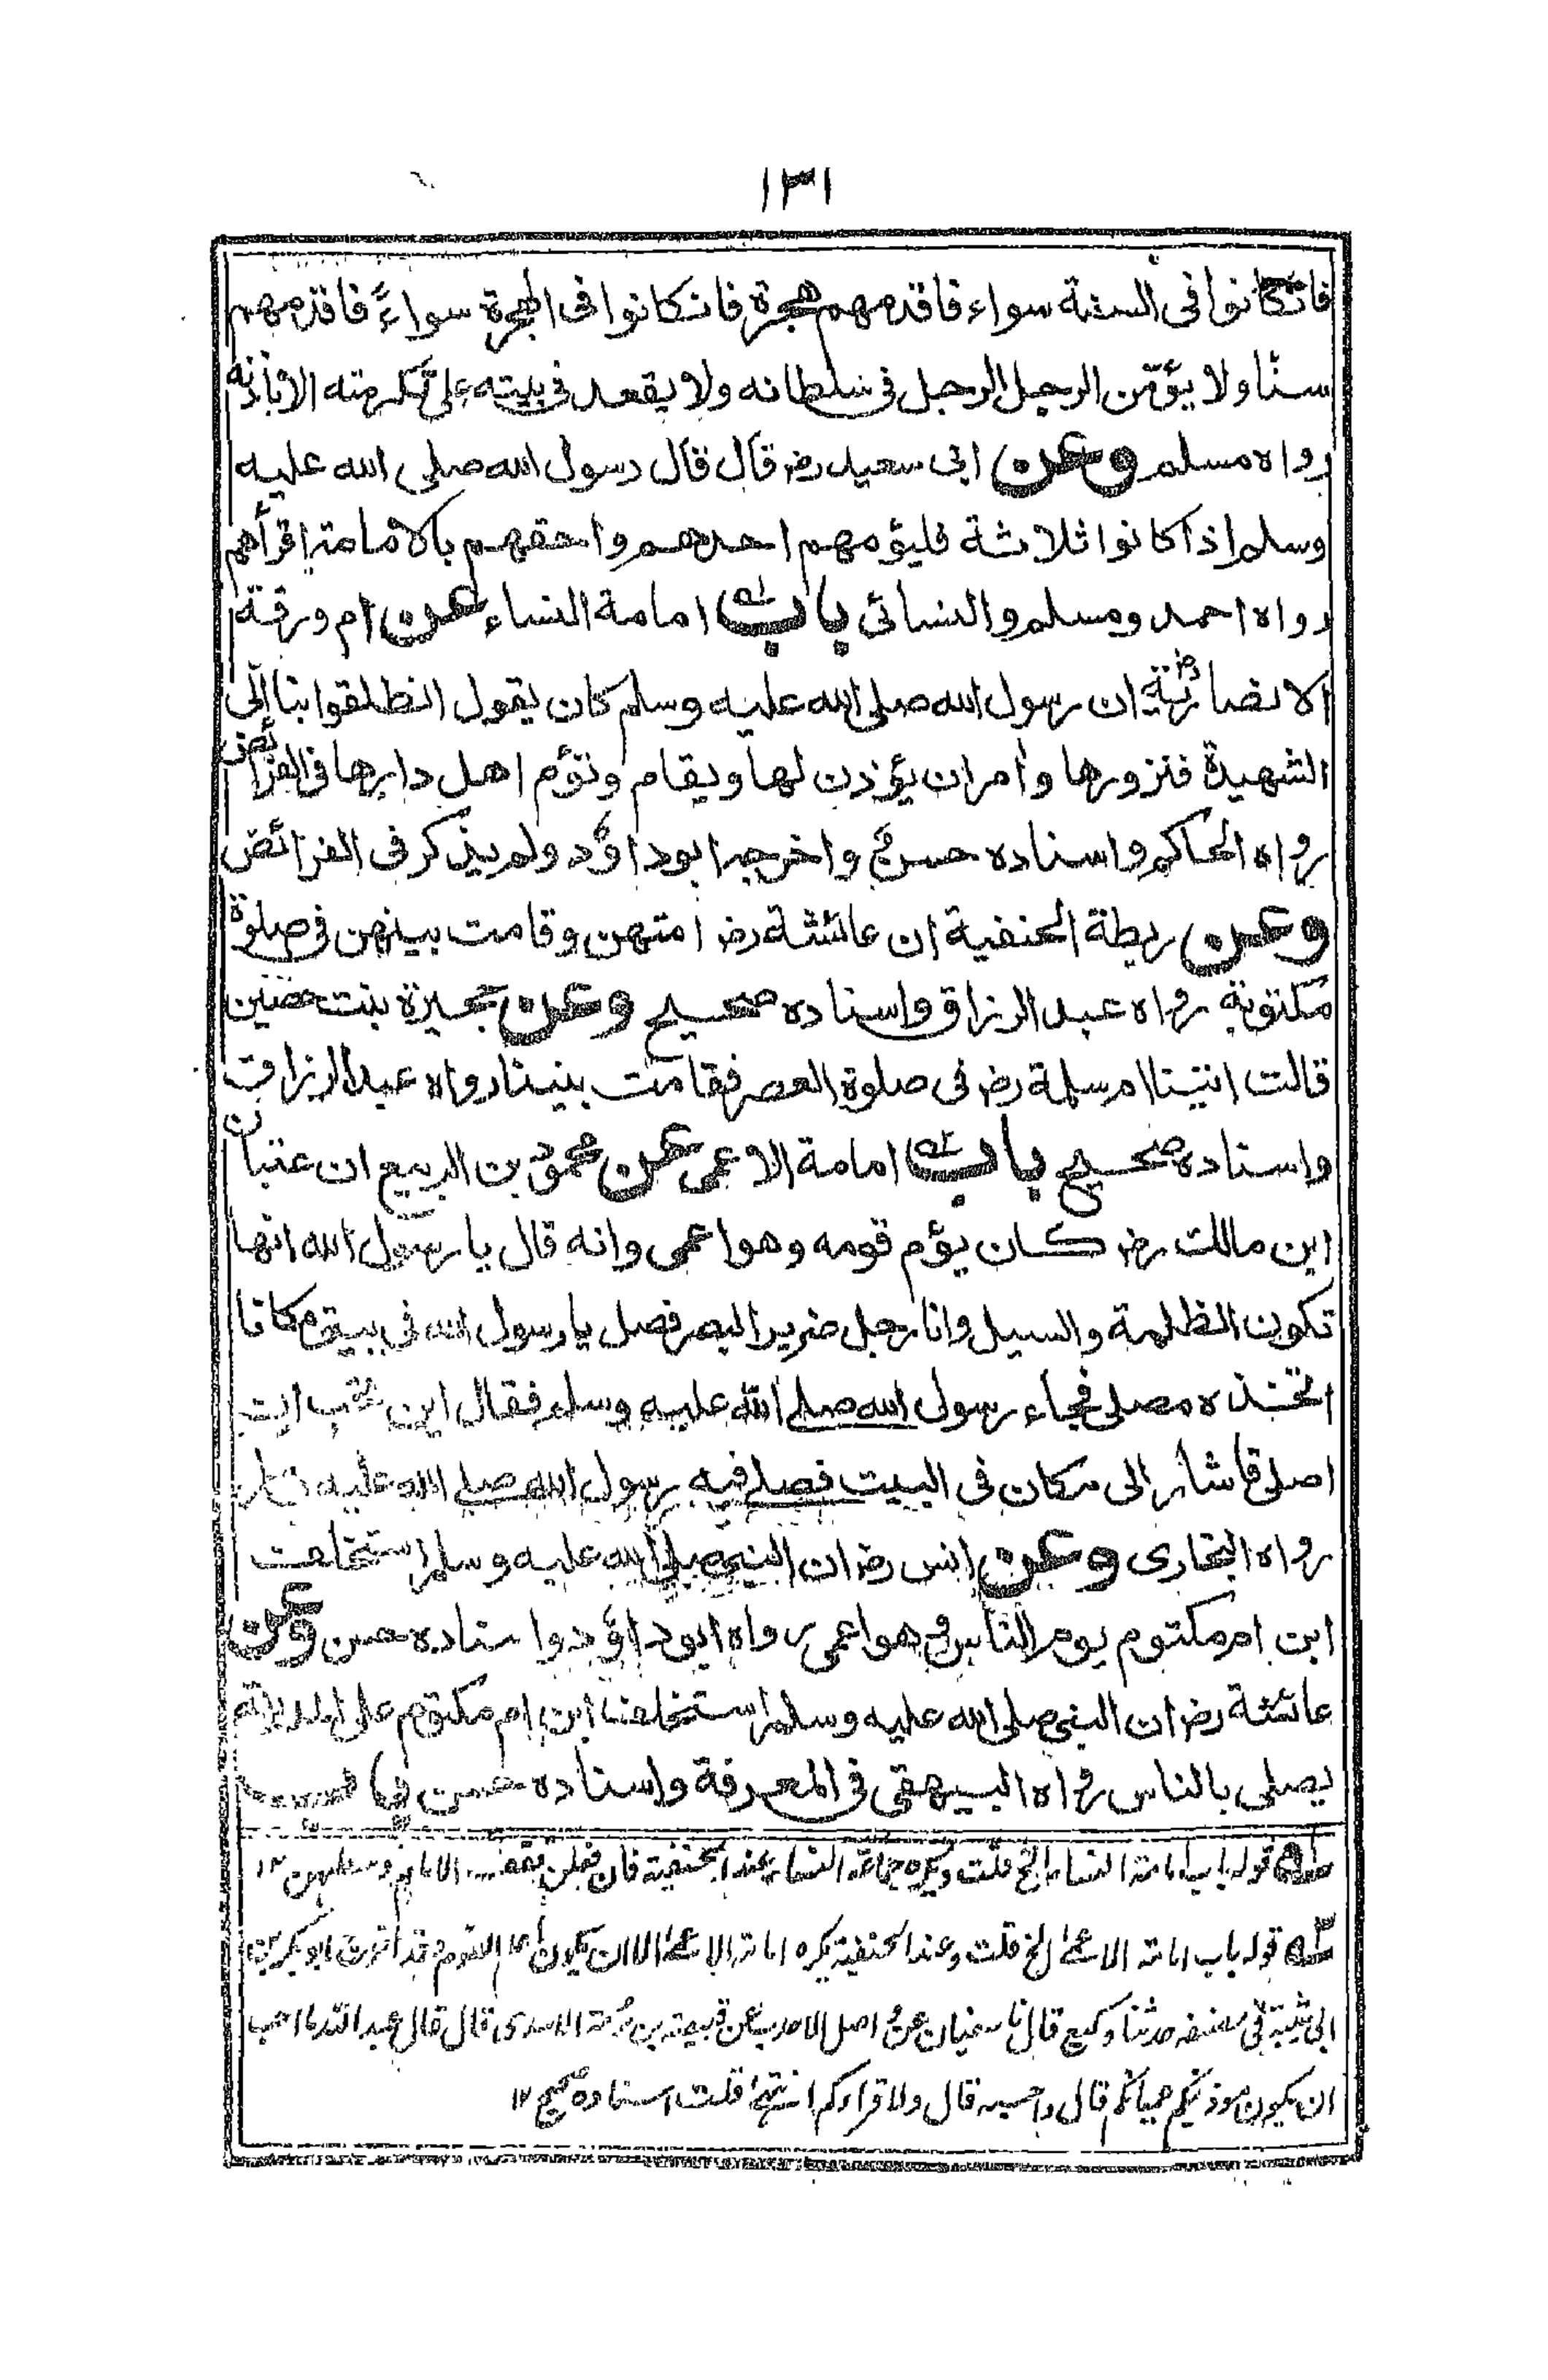 ١٣١
فان كانوا فى السنة سواء فاقدمهم هجرة فان كانوا فى الهجرة سواءً فاقدمهم
سنّا ولا يؤمّن الرجل الرجل فى سلطانه ولا يقعد فى بيته على تكرمته الا باذنه
رواه مسلم وعن ابى سعيد رض قال قال رسول الله صلى الله عليه
وسلم اذا كانوا ثلاثة فليؤمهم احدهم واحقهم بالامامة اقرأهم
رواه احمد ومسلم والنسائى باب امامة النساء عن ام ورقة
الانصارية رض ان رسول الله صلى الله عليه وسلم كان يقول انطلقوا بنا الى
الشهيدة فنزورها وامر ان يؤذن لها ويقام وتؤم اهل دارها فى الفرائض
رواه الحاكم واسناده حسن واخرجه ابوداؤد ولم يذكر فى الفرائض
وعن ريطة الحنفية ان عائشة رض امتهن وقامت بينهن فى صلوة
مكتوبة رواه عبد الرزاق واسناده صحيح وعن حجيرة بنت حصين
قالت امتنا ام سلمة رض فى صلوة العصر فقامت بيننا رواه عبد الرزاق
واسناده صحيح باب امامة الاعمى عن محمود بن الربيع ان عتبان
ابن مالك رض كان يؤم قومه وهو اعمى وانه قال يا رسول الله انها
تكون الظلمة والسيل وانا رجل ضرير البصر فصل يا رسول الله فى بيتى مكانا
اتخذه مصلى فجاء رسول الله صلى الله عليه وسلم فقال اين تحب ان
اصلى فاشار الى مكان فى البيت فصلى فيه رسول الله صلى الله عليه وسلم
رواه البخارى وعن انس رض ان النبى صلى الله عليه وسلم استخلف
ابن ام مكتوم يوم الناس وهو اعمى رواه ابوداؤد واسناده حسن وعن
عائشة رض ان النبى صلى الله عليه وسلم استخلف ابن ام مكتوم على المدينة
يصلى بالناس رواه البيهقى فى المعرفة واسناده حسن
قوله باب امامة النساء الخ قلت ويكره جماعة النساء عند الحنفية فان فعلن تقف الامام وسطهن ١٢
قوله باب امامة الاعمى الخ قلت وعند الحنفية يكره امامة الاعمى الا ان يكون اعلم القوم وقد اخرج ابو بكر بن
ابى شيبة فى مصنفه حدثنا وكيع قال نا سفيان عن واصل الاحدب عن قبيصة بن برمة الاسدى قال قال عبد الله ما احب
ان يكون موذنيكم عميانكم قال واحسبه قال ولا قراءكم انتهى قلت اسناده صحيح ١٢